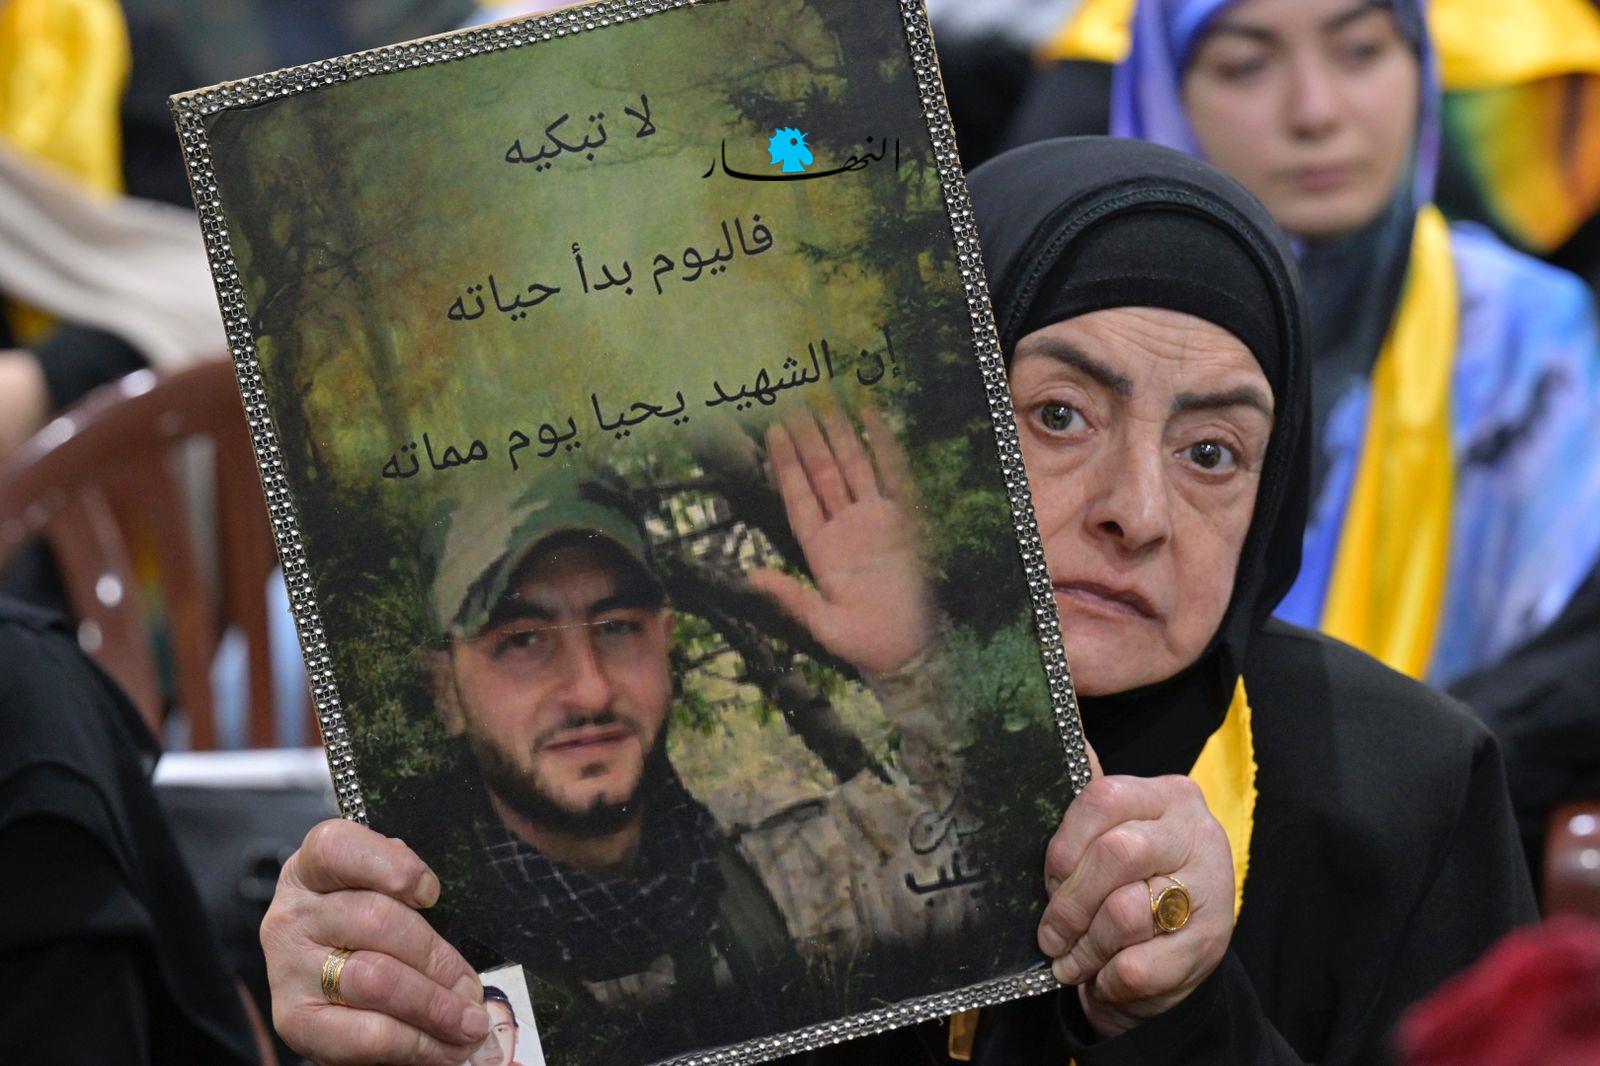 لا تبكيه
النهار
فاليوم بدأ حياته
إن الشهيد يحيا يوم مماته